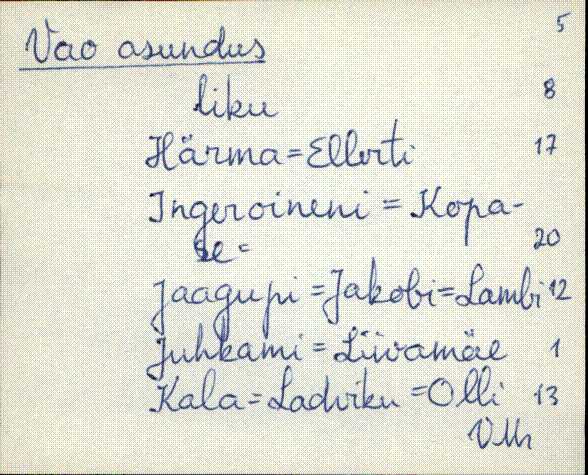 5
Vao asundus
liku 8
Härma = Ellerti 17
Ingeroineni = Kopa-
se = 20
Jaagupi = Jakobi = Lambi 12
Juhkami = Liivamäe 1
Kala = Ladviku = Olli 13